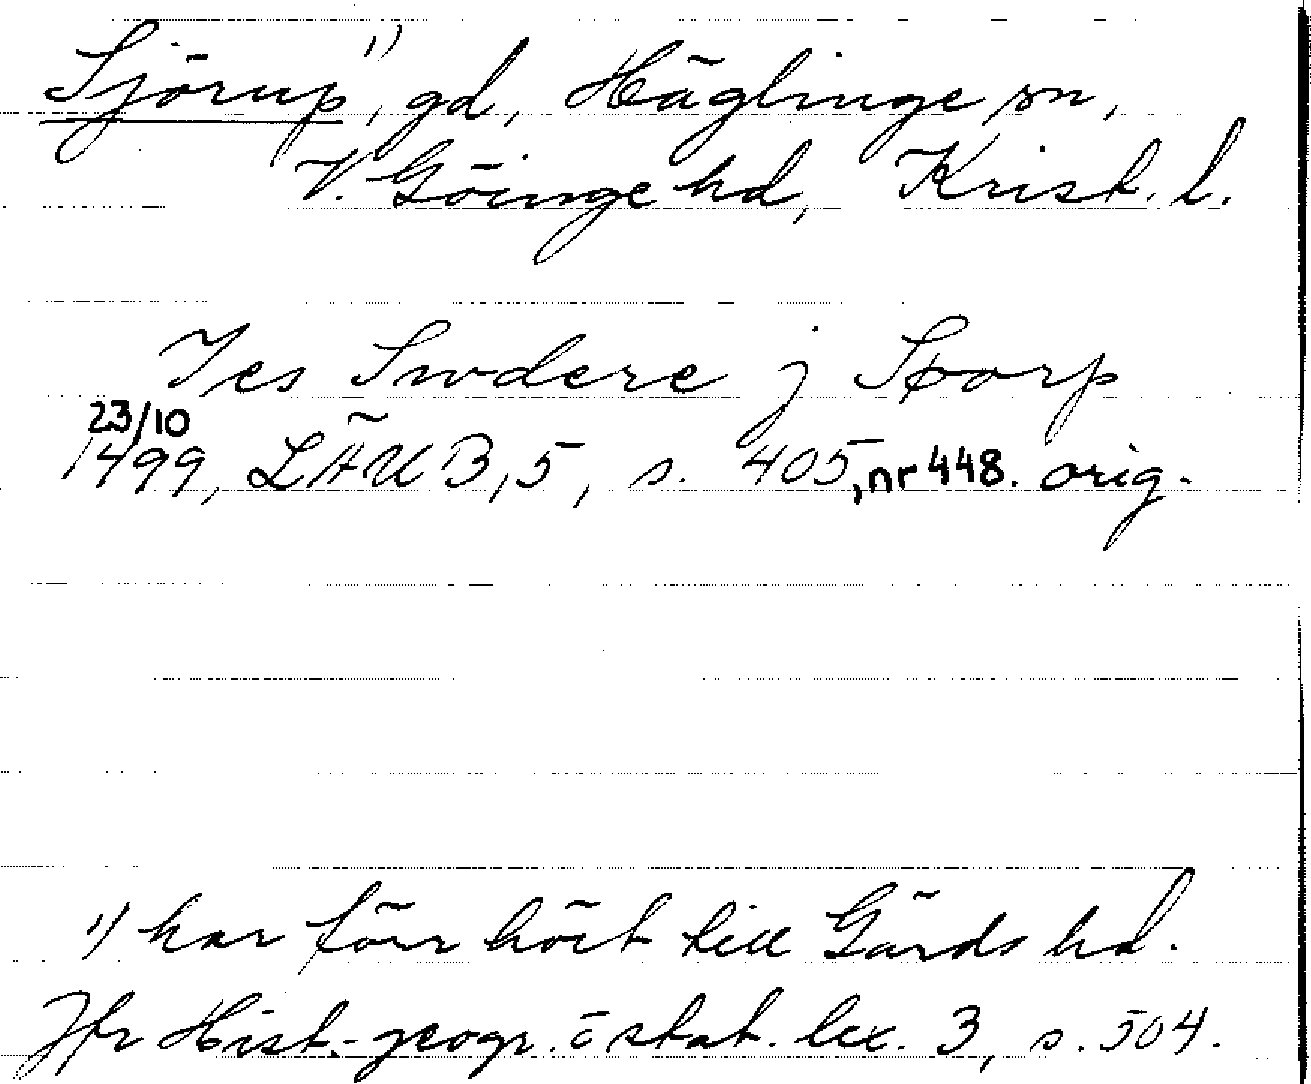 Sjörup¹⁾, gd, Häglinge sn,
V. Göinge hd, Krist. l.
Jes Swdere j Siørp
23/10
1499, LÄUB, 5, s. 405, nr 448. orig.
¹⁾ har förr hört till Gärds hd.
Jfr Hist.-geogr. o stat. lex. 3, s. 504.